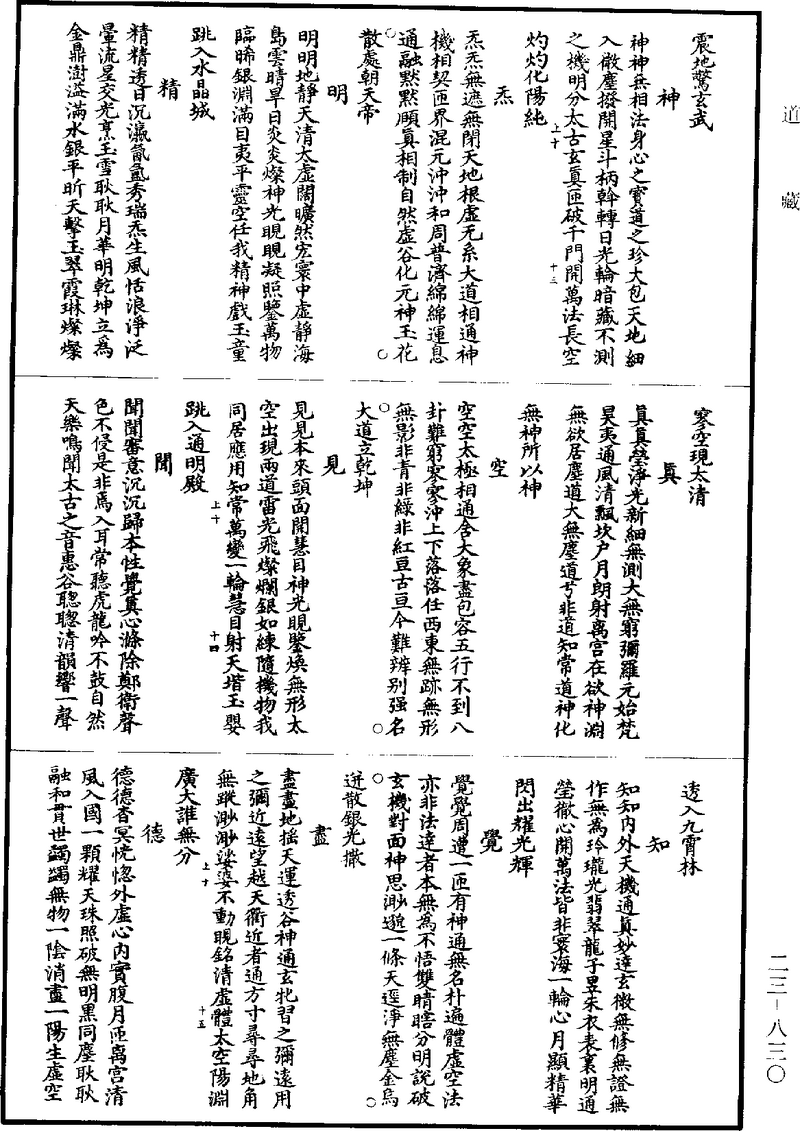 道藏
震地驚玄武
神
神神無相法身心之寳道之珍大包天地細
入微塵撥開星斗柄斡轉日光輪暗藏不測
之機明分太古玄眞匝破千門開萬法長空
上十 十三
灼灼化陽純
炁
炁炁無遮無閉天地根虛无系大道相通神
機相契匝界混元沖沖和周普濟綿綿運息
通融默默頤眞相制自然虛谷化元神玉花
散處朝天帝
明
明明地靜天清太虛闊曠然宏寰中虛靜海
島雲晴旱日炎炎燦神光晛晛凝照鑒萬物
臨睎銀淵滿目夷平靈空任我精神戲玉童
跳入水晶城
精
精精透日沉瀛氤氳秀瑞炁生風恬浪淨泛
暈流星交光烹玉雪耿耿月華明乾坤立爲
金鼎澍溢滿水銀平昕天擊玉翠霞琳燦燦
寥空現太清
眞
眞眞瑩淨光新細無測大無窮彌羅元始梵
昊夷通風清飄坎户月朗射离宫在欲神淵
無欲居塵道大無塵道兮非道知常道神化
無神所以神
空
空空太極相通含大象盡包容五行不到八
卦難窮寥寥沖上下落落任西東無跡無形
無影非青非綠非紅亘古亘今難辨别强名
大道立乾坤
見
見見本來頭面開慧目神光晛鑒煥無形太
空出現兩道雷光飛燦爛銀如練隨機物我
同居應用知常萬變一輪慧目射天堦玉嬰
上十 十四
跳入通明殿
聞
聞聞審意沉沉歸本性覺眞心滌除鄭衛聲
色不侵是非焉入耳常聽虎龍吟不鼓自然
天樂鳴聞太古之音惠谷聦聦清韻響一聲
透入九霄林
知
知知内外天機通眞妙達玄微無修無證無
作無爲玲瓏光翡翠龍子昱朱衣表裏明通
瑩徹心開萬法皆非寰海一輪心月顯精華
閃出耀光輝
覺
覺覺周遭一匝有神通無名朴遍體虛空法
亦非法達者本無爲不悟雙睛瞎分明說破
玄機對面神思渺邈一條天逕淨無塵金烏
迸散銀光撒
盡
盡盡地摇天運透谷神通玄牝習之彌遠用
之彌近遠望越天衢近者通方寸尋尋地角
無蹤渺渺娑婆不動晛銘清虛體太空陽淵
上十 十五
廣大誰無分
德
德德杳冥恍惚外虛心内實腹月匝离宫清
風入國一顆耀天珠照破無明黒同塵耿耿
融和貫世蠲蠲無物一陰消盡一陽生虛空
二三－八三〇